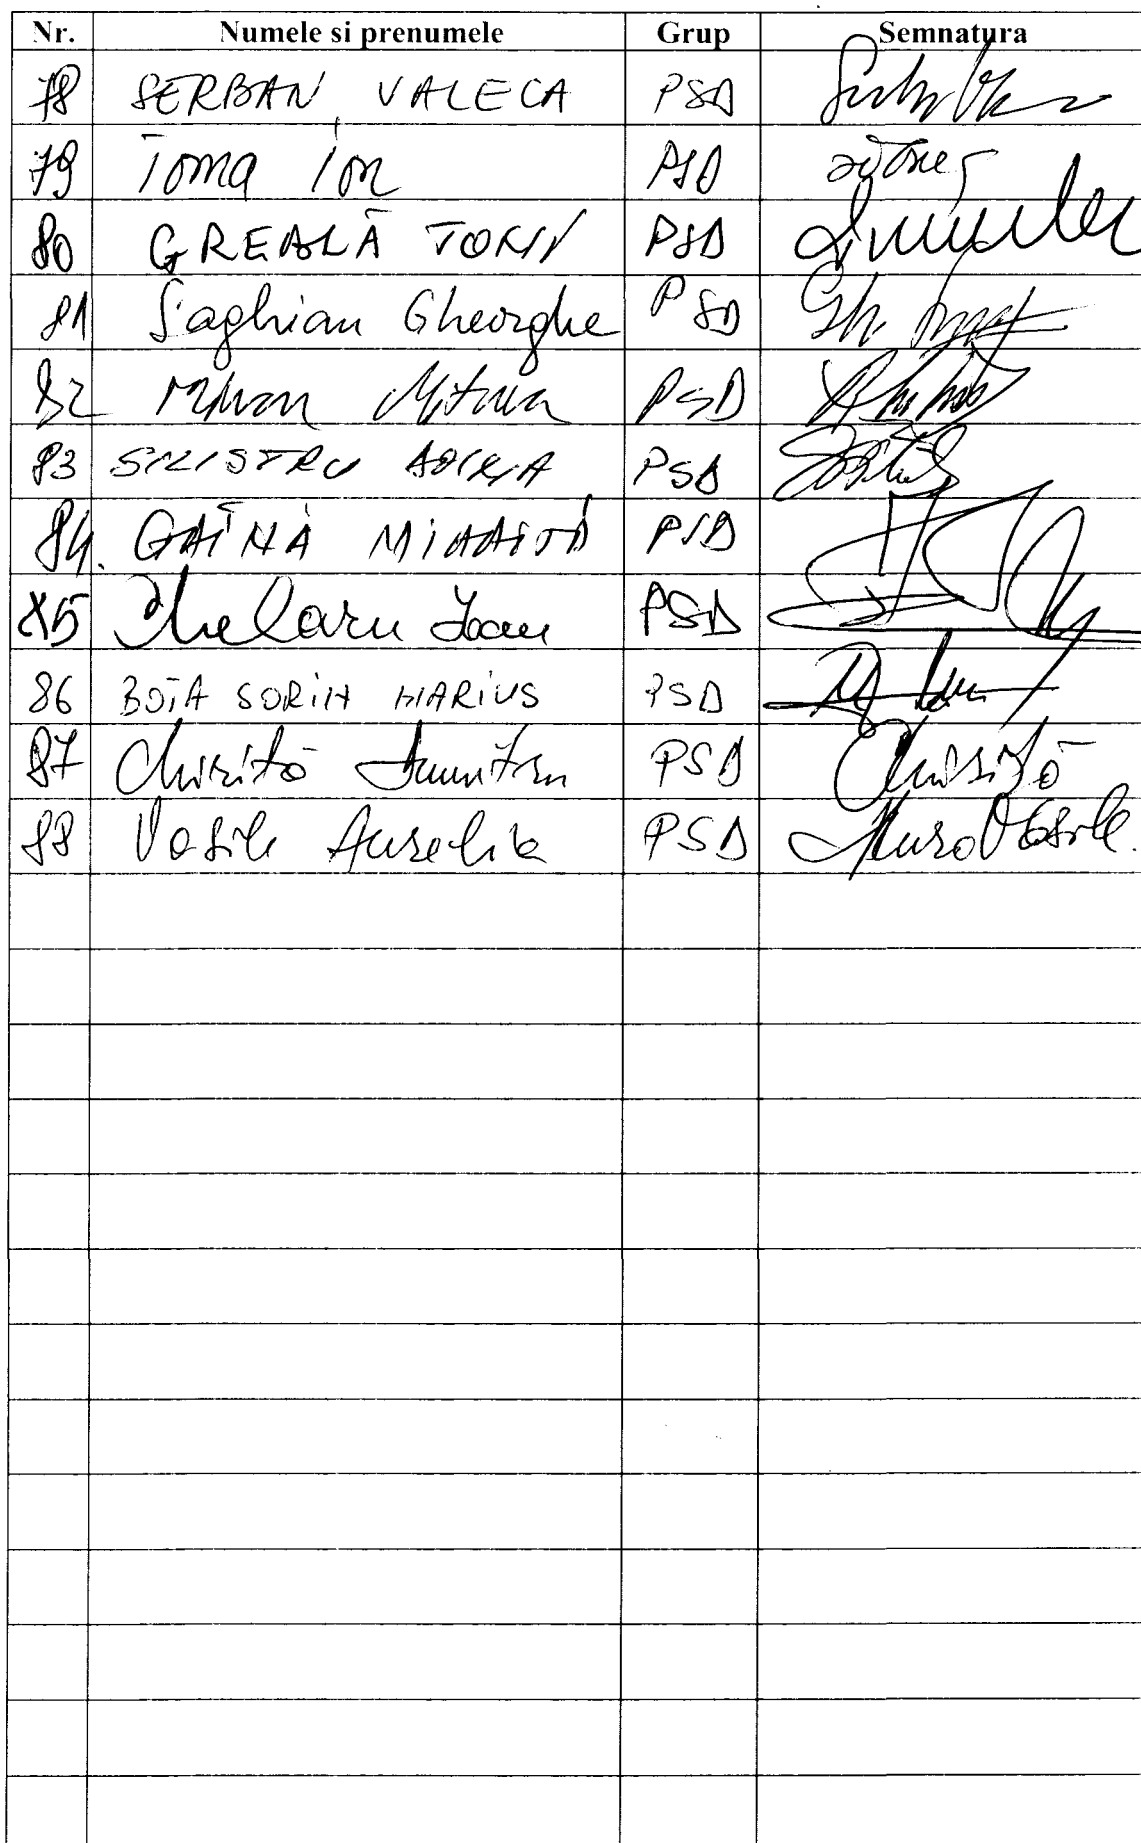 Nr. Numele si prenumele Grup Semnatura
78 SERBAN VALECA PSD
79 Toma Ion PSD
80 GREBLĂ TONI PSD
81 Saghian Gheorghe PSD Gh.
82 PSD
83 SILISTRU DOINA PSD
84. GAÎNĂ MIHĂIȚĂ PSD
85 Chelaru Ioan PSD
86 BOTA SORIN MARIUS PSD
87 Chiriță Dumitru PSD Chiriță
88 Vasile Aurelia PSD Vasile.